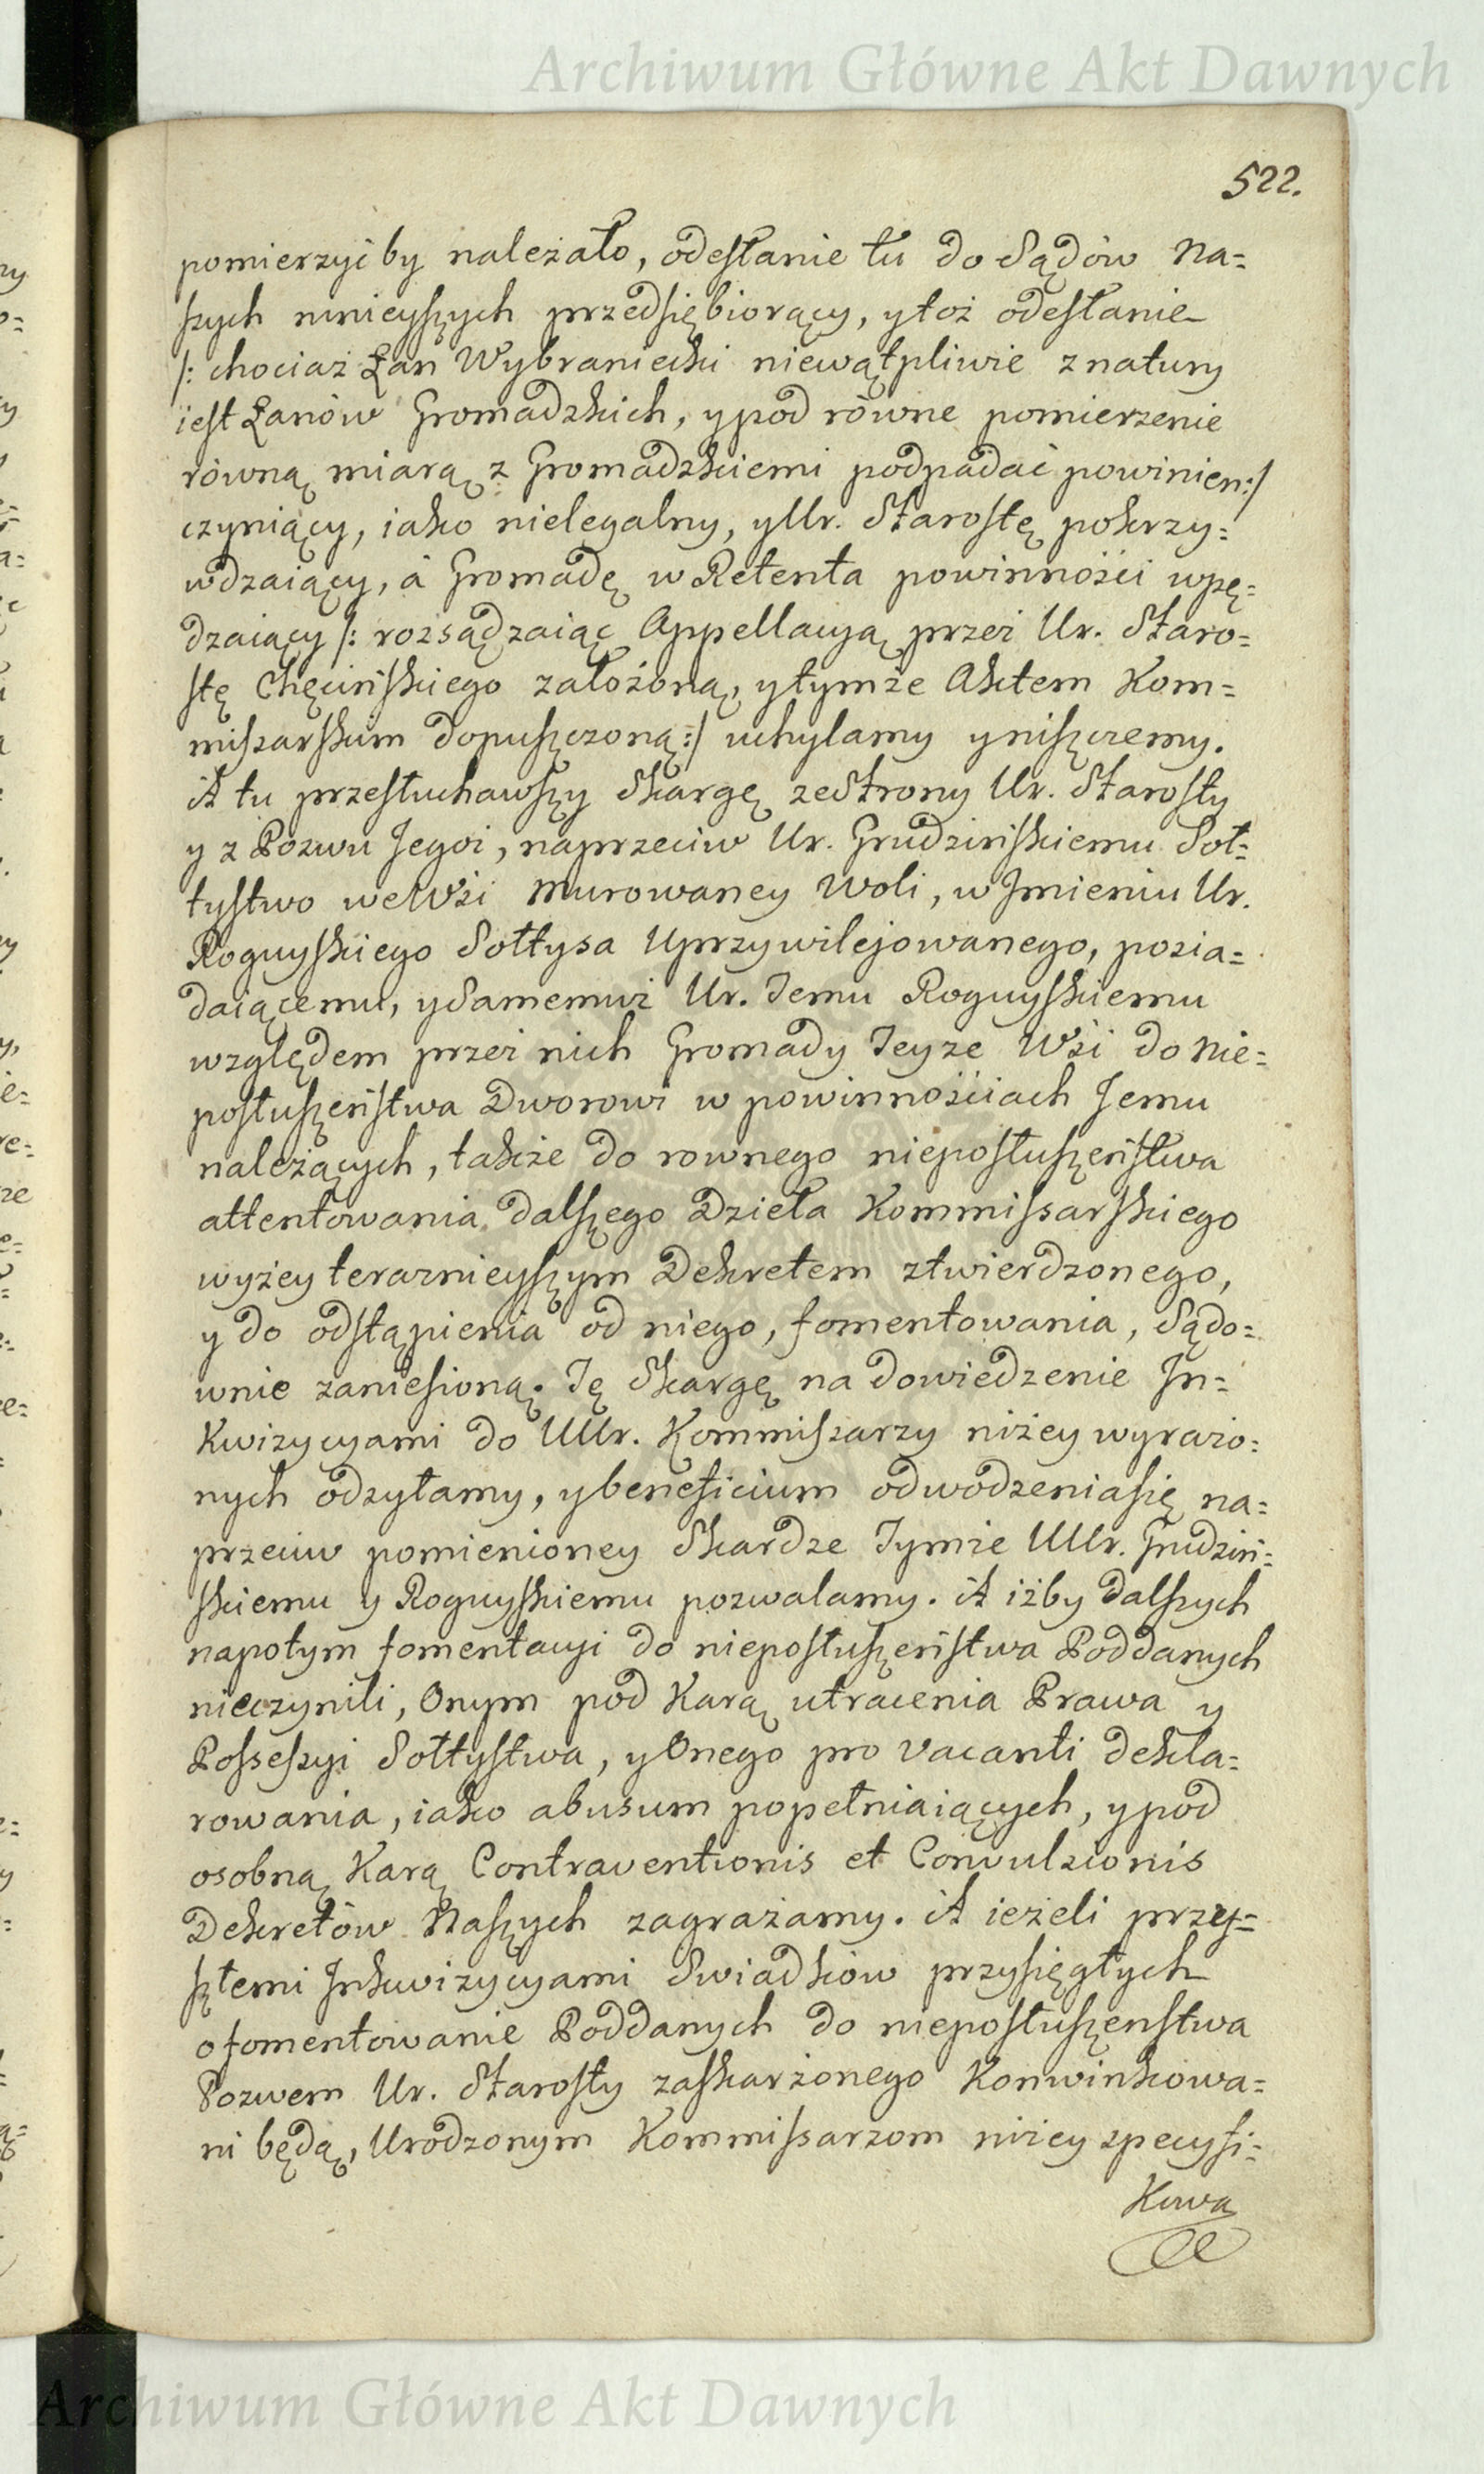 Archiwum Główne Akt Dawnych
522.
pomierzyć by należało, odesłanie tu do Sądów Na=
szych mnieyszych przedsiębiorący, ytoż odesłanie
/: chociaż Łan Wybraniecki niewątpliwie z natury
iest Łanów Gromadzkich, y pod równe pomierzenie
równą miarą z Gromadzkiemi podpadać powinien:/
czyniący, iako nielegalny, y Ur. Starostę pokrzy=
wdzaiący, á Gromadę w Retenta powinności wpę=
dzaiący /: rozsądzaiąc Appellacyą przez Ur. Staro=
stę Chęcińskiego założoną, y tymże Aktem Kom=
miszarskim dopuszczoną:/ uchylamy y niszczemy.
A tu przesłuchawszy Skargę ze Strony Ur. Starosty
y z Pozwu Jegoż, naprzeciw Ur. Grudzińskiemu Soł=
tystwo we Wsi Murowaney Woli, w Jmieniu Ur.
Roguyskiego Sołtysa Uprzywilejowanego, posia=
daiącemu, y Samemuż Ur. Temu Roguyskiemu
względem przez nich Gromady Teyże Wśi do Nie=
posłuszeństwa Dworowi w powinnościach Jemu
należących, także do rownego nieposłuszeństwa
attentowania dalszego Dzieła Kommissarskiego
wyżey teraznieyszym Dekretem ztwierdzonego,
y do odstąpienia od niego, fomentowania, Sądo=
wnie zaniesioną. Tę Skargę na dowiedzenie In=
kwizycyami do UUr. Kommiszarzy niżey wyrażo=
nych odzyłamy, y beneficium odwodzenia się na=
przeciw pomienioney Skardze Tymże UUr. Grudziń=
skiemu y Roguyskiemu pozwalamy. A iżby dalszych
napotym fomentacyi do nieposłuszeństwa Poddanych
nieczynili, Onym pod Karą utracenia Prawa y
Possessyi Sołtystwa, y Onego pro vacanti dekla=
rowania, iako abusum popełniaiących, y pod
osobną Karą Contraventionis et Convulzionis
Dekretów Naszych zagrażamy. A ieżeli przy=
szłemi Inkwizycyami Swiadków przysięgłych
o fomentowanie Poddanych do nieposłuszenstwa
Pozwem Ur. Starosty zaskarżonego Konwinkowa=
ni będą, Urodzonym Kommissarzom niżey specyfi=
Kowa
Archiwum Główne Akt Dawnych